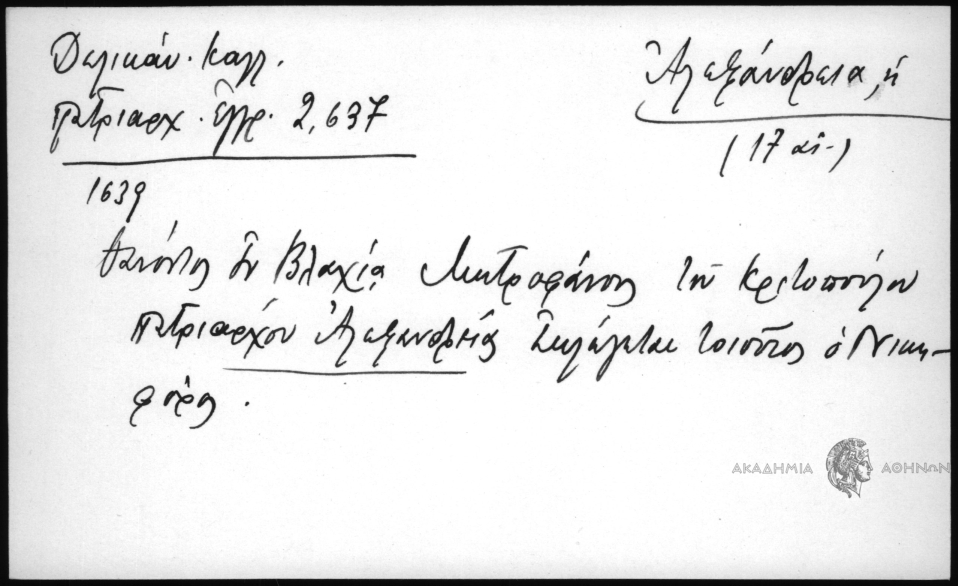 Δελικάν. Καλλ.
Πατριαρχ. Ἔγγρ. 2, 637
Ἀλεξάνδρεια, ἡ
(17 αἰ.)
1639
Θανόντος ἐν Βλαχίᾳ Μητροφάνους τοῦ Κριτοπούλου
πατριάρχου Ἀλεξανδρείας ἐκλέγεται τοιοῦτος ὁ Νικη-
φόρος.
ΑΚΑΔΗΜΙΑ ΑΘΗΝΩΝ